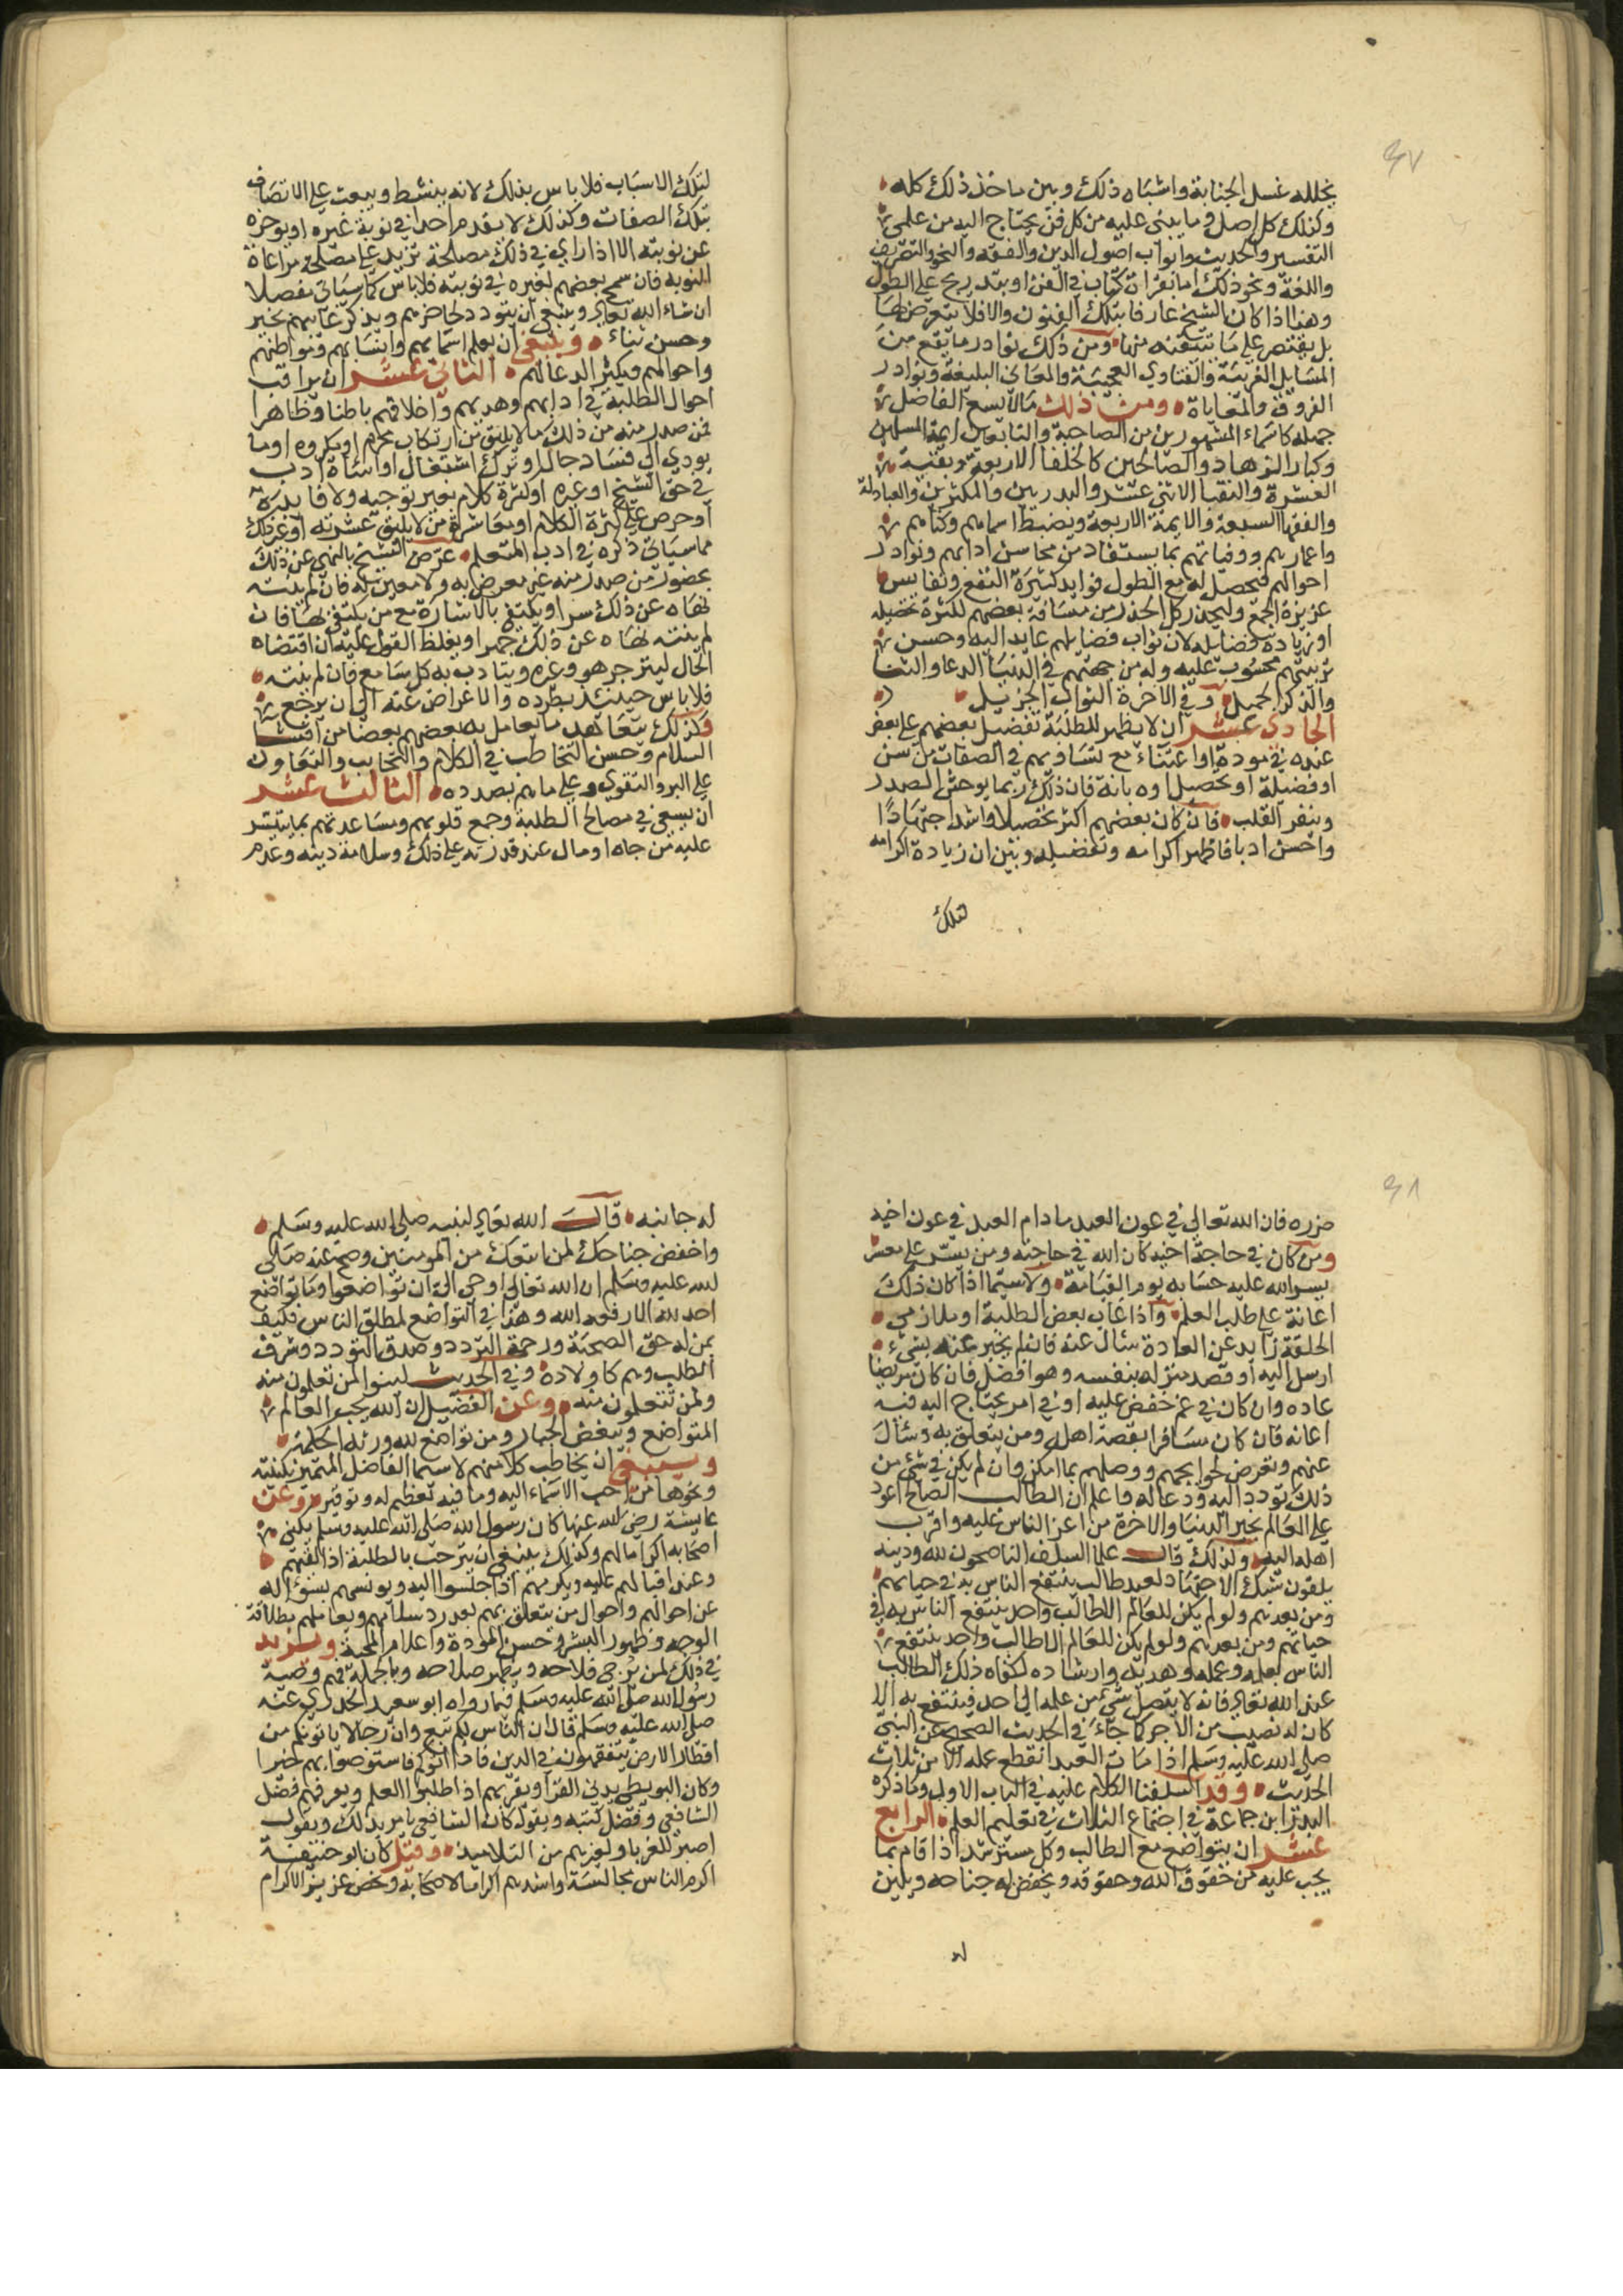 ٤٧
يخلله غسل الجنابة واشباه ذلك وبين ماخذ ذلك كله
وكذلك كل اصل وما يبنى عليه من كل فن يحتاج اليه من علمي
التفسير والحديث وابواب اصول الدين والفقه والنحو والتصريف
واللغة ونحو ذلك اما بقراة كتاب في الفن او بتدريج على الطول
وهذا اذا كان الشيخ عارفا بتلك الفنون والا فلا يتعرض لها
بل يقتصر على ما يتقنه منها ومن ذلك نوادر ما يقع من
المسايل الغريبة والفتاوي العجيبة والمعاني البليغة ونوادر
الفروق والمعاياة ومن ذلك مالا يسع الفاضل
جهله كاسماء المشهورين من الصاحبة والتابعين ايمة المسلمين
وكبار الزهاد والصالحين كالخلفا الاربعة وبقية
العشرة والنقبا الاثني عشر والبدريين والمكثرين والعبادلة
والفقها السبعة والايمة الاربعة ويضبط اسمايهم وكناهم
واعمارهم ووفياتهم بما يستفاد من محاسن ادابهم ونوادر
احوالهم فيحصل له مع الطول فوايد كثيرة النفع ونفايس
عزيزة الجمع وليحذر كل الحذر من مسافة بعضهم لكثرة تحصيله
او زيادة فضايله لان ثواب فضايلهم عايد اليه وحسن
تربيتهم محسوب عليه وله من جهتهم في الدنيا الدعا والثنا
والذكر الجميل وفي الاخرة الثواب الجزيل
الحادي عشر ان لا يظهر للطلبة تفضيل بعضهم على بعض
عنده في مودة او اعتناء مع تساويهم في الصفات من سن
او فضيلة او تحصيل او ديانة فان ذلك ربما يوحش الصدر
وينفر القلب فان كان بعضهم اكثر تحصيلا واشد اجتهادًا
واحسن ادبا فاظهر اكرامه وتفضيله وبين ان زيادة اكرامه
لتلك
لتلك الاسباب فلا باس بذلك لانه ينشط ويبعث على الاتصاف
بتلك الصفات وكذلك لا يقدم احدا في نوبة غيره او يوخره
عن نوبته الا اذا راي في ذلك مصلحة تزيد على مصلحة مراعاة
النوبه فان سمح بعضهم لغيره في نوبته فلا باس كما سياتي مفصلا
ان شاء الله تعالي وينبغي ان يتودد لحاضرهم ويذكر غايبهم بخير
وحسن ثناء وينبغي ان يعلم اسمايهم وانسابهم ومواطنهم
واحوالهم ويكثر الدعا لهم الثاني عشر ان يراقب
احوال الطلبة في ادابهم وهديهم واخلاقهم باطنا وظاهرا
فمن صدر منه من ذلك مالا يليق من ارتكاب محرم او مكروه او ما
يودي الي فساد حال او ترك اشتغال او اساة ادب
في حق الشيخ او غيره او كثرة كلام بغير توجيه ولا فايدة
او حرص على كثرة الكلام او معاشرة من لا يليق عشرته او غير ذلك
مما سياتي ذكره في ادب المتعلم عرض الشيخ بالنهي عن ذلك
بحضور من صدر منه غير معرض به ولا معين له فان لم ينته
نهاه عن ذلك سرا ويكتفي بالاشارة مع من يكتفي بها فان
لم ينته نهاه عن ذلك جهرا ويغلظ القول عليه ان اقتضاه
الحال لينزجر هو وغيره ويتادب به كل سامع فان لم ينته
فلا باس حينئذ بطرده والاعراض عنه الى ان يرجع
وكذلك يتعاهد ما يعامل به بعضهم بعضا من افشا
السلام وحسن التخاطب في الكلام والتحابب والتعاون
على البر والتقوي وعلى ما هم بصدده الثالث عشر
ان يسعي في مصالح الطلبة وجمع قلوبهم ومساعدتهم بما يتيسر
عليه من جاه او مال عند قدرته على ذلك وسلامة دينه وعدم
٤٨
ضرره فان الله تعالي في عون العبد ما دام العبد في عون اخيه
ومن كان في حاجة اخيه كان الله في حاجته ومن يسر على معسر
يسر الله عليه حسابه يوم القيامة ولا سيما اذا كان ذلك
اعانة على طلب العلم واذا غاب بعض الطلبة او ملازمي
الحلقة زايد عن العادة سال عنه فان لم يخبر عنه بشيء
ارسل اليه او قصد منزله بنفسه وهو افضل فان كان مريضا
عاده وان كان في غم خفض عليه او في امر يحتاج اليه فيه
اعانه فان كان مسافرا تفقد اهله ومن يتعلق به وسال
عنهم وتعرض لحوايجهم ووصلهم بما امكن وان لم يكن في شي من
ذلك تودد اليه ودعا له واعلم ان الطالب الصالح اعود
على العالم بخير الدنيا والاخرة من اعز الناس عليه واقرب
اهله اليه ولذلك قال علما السلف الناصحون لله ودينه
يلقون شبك الاجتهاد لصيد طالب ينتفع الناس به في حياتهم
ومن بعدهم ولو لم يكن للعالم الا طالب واحد ينتفع الناس به في
حياتهم ومن بعدهم ولو لم يكن للعالم الا طالب واحد ينتفع
الناس بعلمه وعمله وهديه وارشاده لكفاه ذلك الطالب
عند الله تعالي فانه لا يتصل شي من علمه الى احد فينتفع به الا
كان له نصيب من الاجر كما جاء في الحديث الصحيح عن النبي
صلى الله عليه وسلم اذا مات العبد انقطع عمله الا من ثلاث
الحديث وقد اسلفنا الكلام عليه في الباب الاول وما ذكره
البدر ابن جماعة في اجتماع الثلاث في تعليم العلم الرابع
عشر ان يتواضع مع الطالب وكل مسترشد اذا قام بما
يجب عليه من حقوق الله وحقوقه ويخفض له جناحه ويلين
له
له جانبه قال الله تعالي لنبيه صلى الله عليه وسلم
واخفض جناحك لمن اتبعك من المومنين وصح عنه صلى
الله عليه وسلم ان الله تعالى اوحي الى ان تواضعوا وما تواضع
احد لله الا رفعه الله وهذا في التواضع لمطلق الناس فكيف
بمن له حق الصحبة وحرمة التردد وصدق التودد وشرف
الطلب وهم كاولاده وفي الحديث لينوا لمن تعلمون منه
ولمن تتعلمون منه وعن الفضيل ان الله يحب العالم
المتواضع ويبغض الجبار ومن تواضع لله ورثه الحكمة
وينبغي ان يخاطب كلا منهم لا سيما الفاضل المتميز بكنيته
ونحوها من احب الاسماء اليه وما فيه تعظيم له وتوقير وعن
عايشة رضي الله عنها كان رسول الله صلى الله عليه وسلم يكني
اصحابه اكراما لهم وكذلك ينبغي ان يترحب بالطلبة اذا لقيهم
وعند اقبالهم عليه ويكرمهم اذا جلسوا اليه ويونسهم بسؤاله
عن احوالهم واحوال من يتعلق بهم بعد رد سلامهم ويعاملهم بطلاقة
الوجه وظهور البشر وحسن المودة واعلام المحبة ويزيد
في ذلك لمن يرجى فلاحه ويظهر صلاحه وبالجملة فهم وصية
رسول الله صلى الله عليه وسلم فيما رواه ابو سعيد الخدري عنه
صلى الله عليه وسلم قال ان الناس لكم تبع وان رجالا ياتونكم من
اقطار الارض يتفقهون في الدين فاذا اتوكم فاستوصوا بهم خيرا
وكان البويطي يدني القرا ويقربهم اذا طلبوا العلم ويعرفهم فضل
الشافعي وفضل كتبه ويقول كان الشافعي يامر بذلك ويقول
اصبر للغربا ولغيرهم من التلاميذ وقيل كان ابو حنيفة
اكرم الناس مجالسة واشدهم اكراما لاصحابه وخص عزيز الاكرام